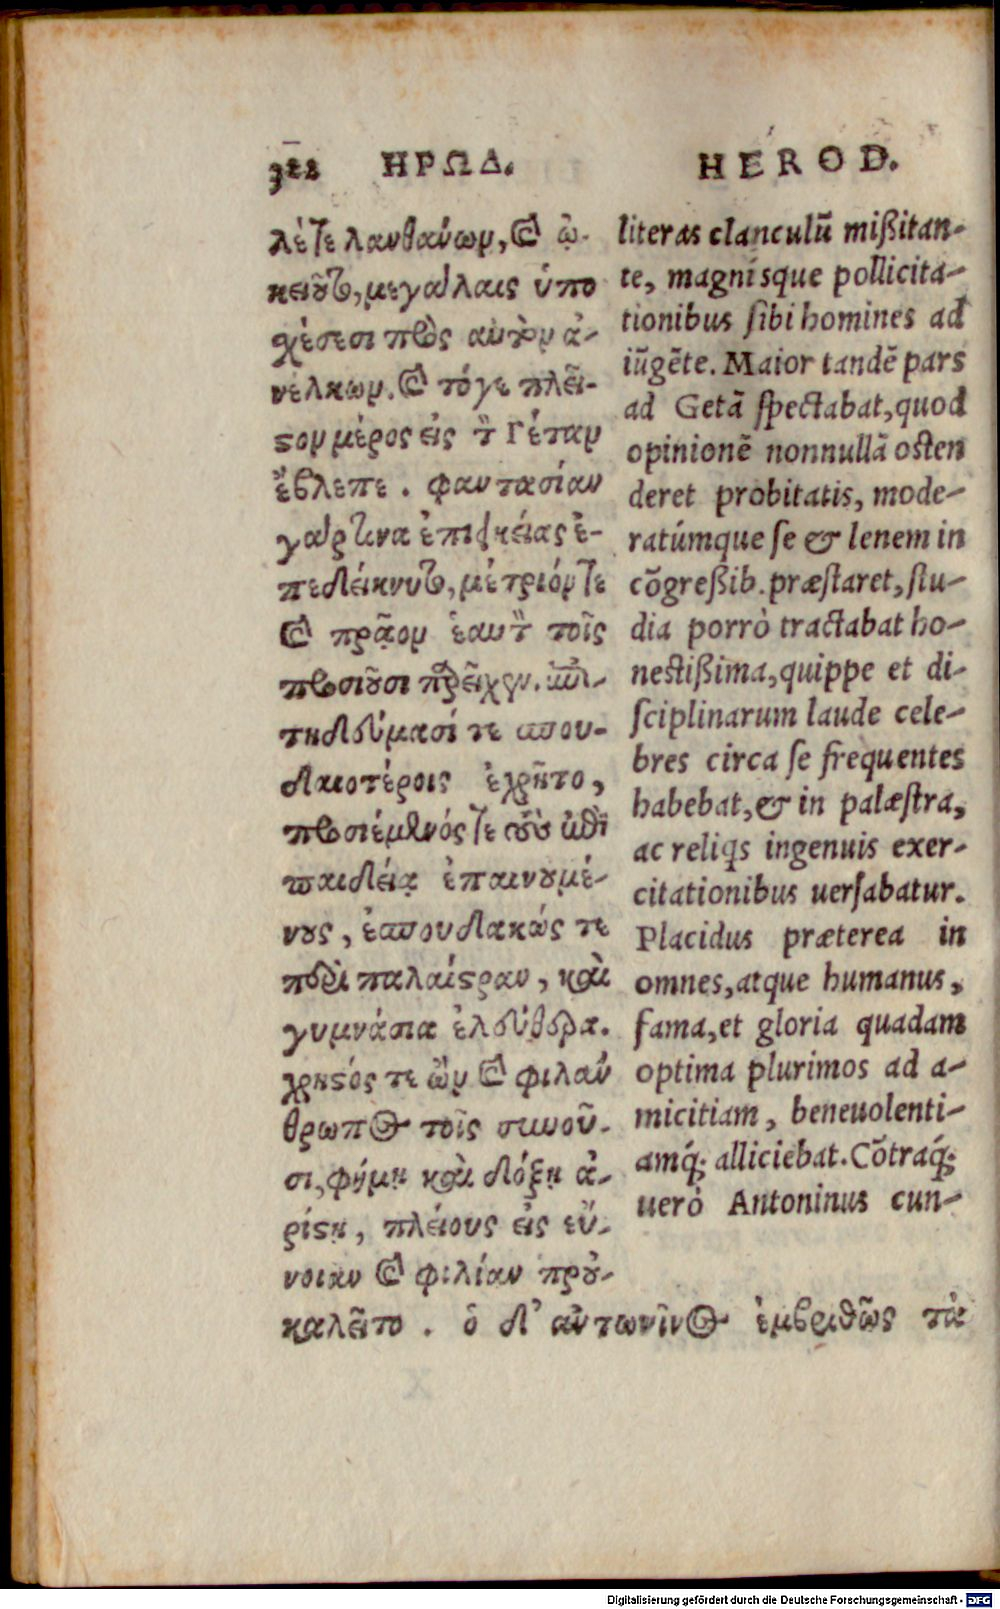 322 ΗΡΩΔ.
λέτε λανθάνων, καὶ ὠ-
κειοῦτο, μεγάλαις ὑπο
χέσεσι πρὸς αὐτὸν ἀ-
νέλκων. καὶ τόγε πλεῖ-
ϛον μέρος εἰς τὸν Γέταν
ἔβλεπε. φαντασίαν
γάρ τινα ἐπιεικείας ἐ-
πεδείκνυτο, μέτριόν τε
καὶ πρᾷον ἑαυτὸν τοῖς
προσιοῦσι παρεῖχεν. ἐπι-
τηδεύμασί τε σπου-
δαιοτέροις ἐχρῆτο,
προσιέμενός τε τοὺς ἐπὶ
παιδείᾳ ἐπαινουμέ-
νους, ἐσπουδακώς τε
περὶ παλαίϛραν, καὶ
γυμνάσια ἐλεύθερα.
χρηϛός τε ὢν καὶ φιλάν
θρωπος τοῖς συνοῦ-
σι, φήμῃ καὶ δόξῃ ἀ-
ρίϛῃ, πλείους εἰς εὔ-
νοιαν καὶ φιλίαν πρου-
καλεῖτο. ὁ δ' ἀντωνῖνος ἐμβριθῶς τὰ
HEROD.
literas clanculū mißitan-
te, magnisque pollicita-
tionibus sibi homines ad
iūgēte. Maior tandē pars
ad Getā spectabat, quod
opinionē nonnullā osten
deret probitatis, mode-
ratúmque se & lenem in
cōgreßib. præstaret, stu-
dia porrò tractabat ho-
nestißima, quippe et di-
sciplinarum laude cele-
bres circa se frequentes
habebat, & in palæstra,
ac reliqs ingenuis exer-
citationibus uersabatur.
Placidus præterea in
omnes, atque humanus,
fama, et gloria quadam
optima plurimos ad a-
micitiam, beneuolenti-
amq́; alliciebat. Cōtraq́;
uerò Antoninus cun-
Digitalisierung gefördert durch die Deutsche Forschungsgemeinschaft - DFG